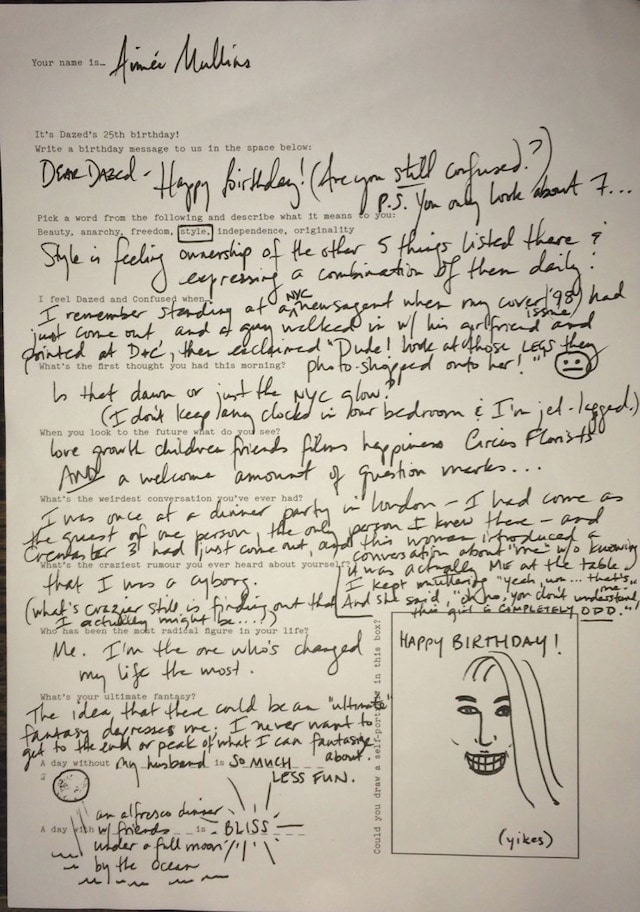 Your name is… Aimée Mullins
It's Dazed's 25th birthday!
Write a birthday message to us in the space below:
DEAR DAZED - Happy birthday! (Are you still confused?)
P.S. You only look about 7...
Pick a word from the following and describe what it means to you:
Beauty, anarchy, freedom, style, independence, originality
Style is feeling ownership of the other 5 things listed there &
expressing a combination of them daily!
I feel Dazed and Confused when…
I remember standing at a NYC newsagent when my cover ('98) had
just come out and a guy walked in w/ his girlfriend and
issue
pointed at D+C, then exclaimed "Dude! Look at those LEGS they
photo-shopped onto her!"
What's the first thought you had this morning?
Is that dawn or just the NYC glow?
(I don't keep any clocks in our bedroom & I'm jet-lagged.)
When you look to the future what do you see?
love growth children friends films happiness Circus Florists
AND a welcome amount of question marks...
What's the weirdest conversation you've ever had?
I was once at a dinner party in London - I had come as
the guest of one person, the only person I knew there - and
Cremaster 3 had just come out, and this woman introduced a
conversation about "me" w/o knowing
it was actually ME at the table.
I kept muttering "yeah, um... that's me"
And she said, "oh no, you don't understand,
this girl is COMPLETELY ODD."
What's the craziest rumour you ever heard about yourself?
that I was a cyborg.
(what's crazier still is finding out that
I actually might be....!)
Who has been the most radical figure in your life?
Me. I'm the one who's changed
my life the most.
What's your ultimate fantasy?
The idea that there could be an "ultimate"
fantasy depresses me. I never want to
get to the end or peak of what I can fantasize
about.
A day without my husband is SO MUCH
LESS FUN.
A day with an alfresco dinner
w/ friends is - BLISS -
under a full moon
by the ocean
Could you draw a self-portrait in this box?
HAPPY BIRTHDAY!
(yikes)